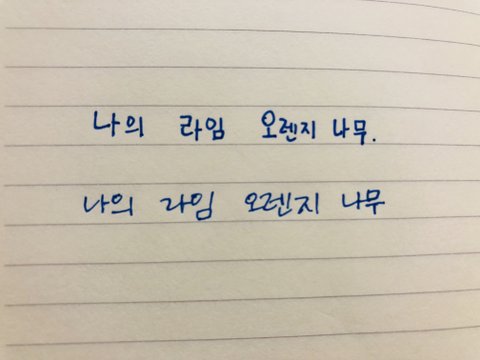 나의 라임 오렌지 나무.
나의 라임 오렌지 나무